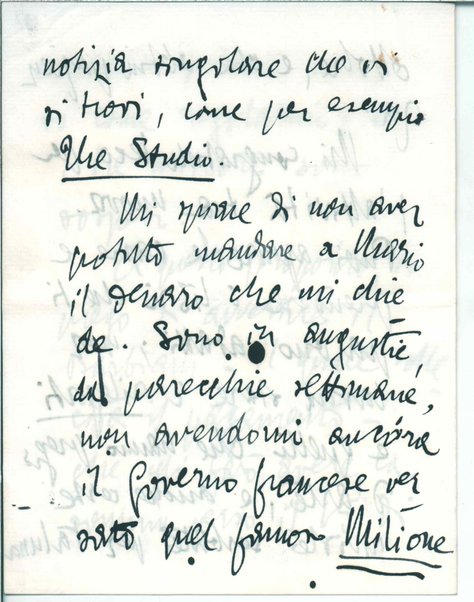 notizia singolare che vi
si trovi, come per esempio
The Studio.
Mi spiace di non aver
potuto mandare a Mario
il denaro che mi chie
de. Sono in angustie,
da parecchie settimane,
non avendomi ancora
il Governo francese ver
sato quel famoso Milione